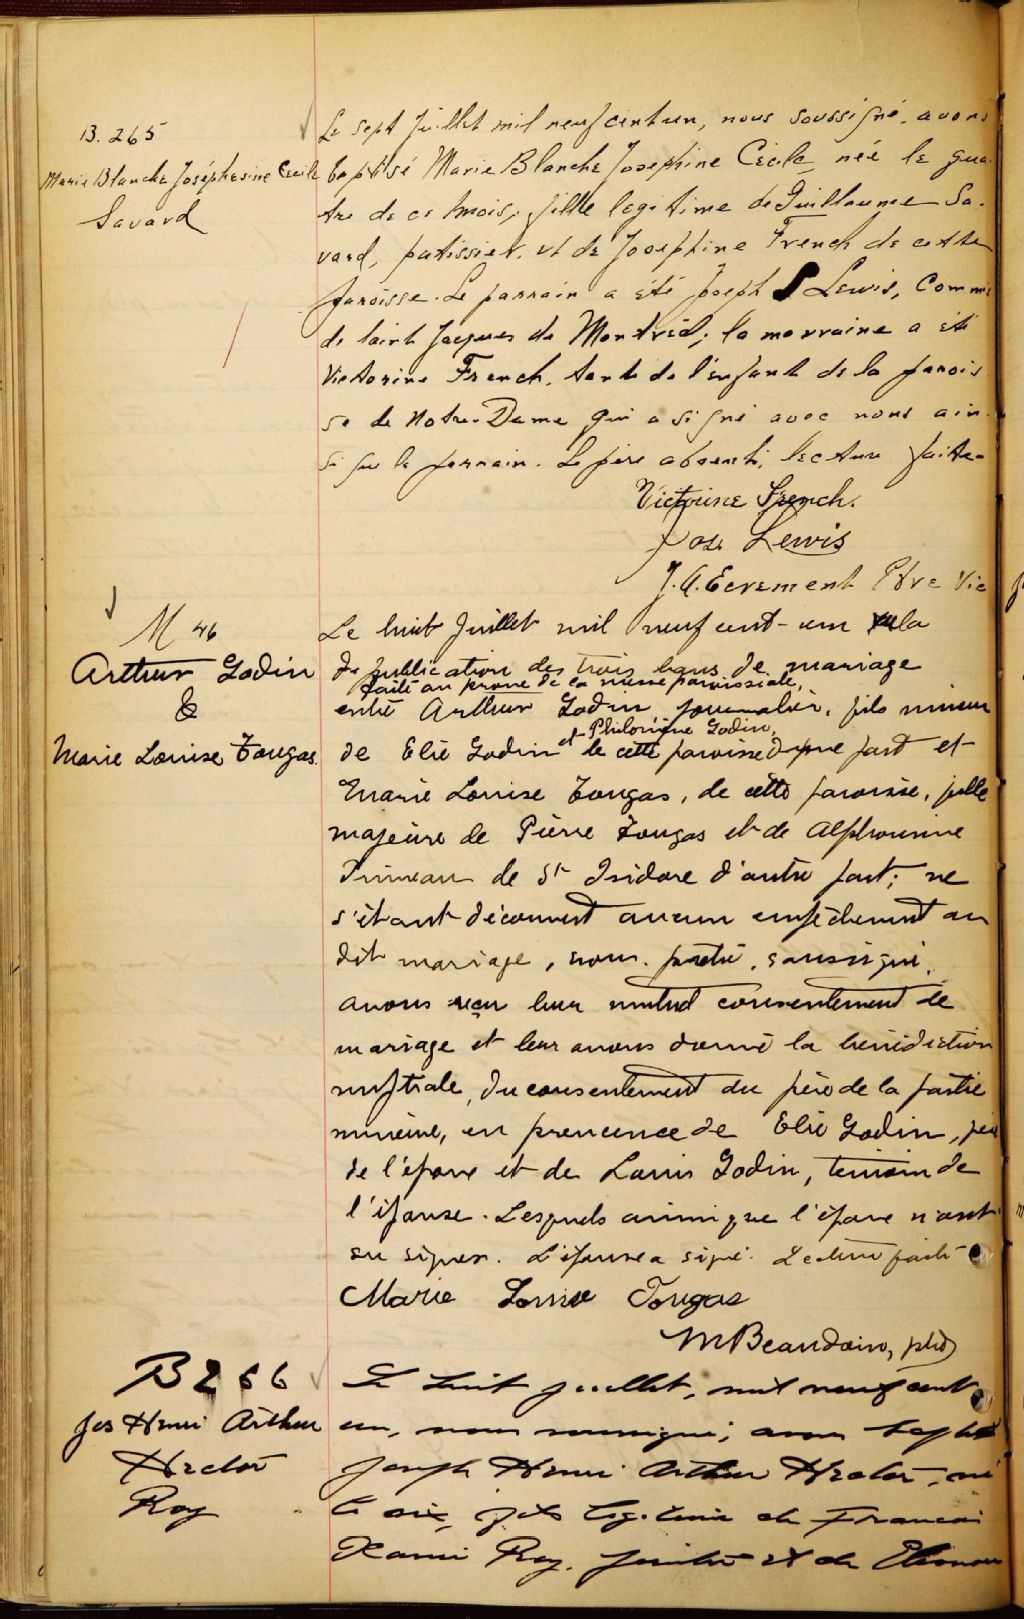 B. 265
Marie Blanche Joséphesine Cecile
Savard
Le sept Juillet mil neuf cent un, nous soussigné, avons
baptisé Marie Blanche Josephine Cécile née le qua
tre de ce mois, fille legitime de Guillaume Sa.
vard, patissier, et de Josephine French de cette
paroisse. Le parrain a été Joseph Lewis, Commis
de saint Jacques de Montréal; la marraine a été
Victorine French, tante de l'enfant de la parois
se de Notre-Dame qui a signé avec nous ain
si que le parrain. Le père absent, lecture faite
Victorine French.
Jos. Lewis
J. A. Ecrement Ptre Vic
M 46
Arthur Godin
&
Marie Louise Tougas
Le huit Juillet mil neuf cent-un vu la
de publication des trois bans de mariage
faite au prone de la messe paroissiale,
entre Arthur Godin journalier, fils mineur
de Elie Godin et Philomène Godin, de cette paroisse d'une part et
Marie Louise Tougas, de cette paroisse, fille
majeure de Pierre Tougas et de Alphonsine
Primeau de St Isidore d'autre part; ne
s'étant découvert aucun empêchement au
dit mariage, nous prêtre, soussigné,
avons reçu leur mutuel consentement de
mariage et leur avons donné la bénédiction
nuptiale, du consentement du père de la partie
mineure, en presence de Elie Godin, père
de l'époux et de Louis Godin, temoin de
l'épouse. Lesquels ainsi que l'époux n'ont
su signer. L'épouse a signé. Lecture faite
Marie Louise Tougas
M Beaudoin, ptre
B 266
Jos Henri Arthur
Hector
Roy
Le huit juillet, mil neuf cent
un, nous soussigné, avons baptisé
Joseph Henri Arthur Hector, né
le six, fils légitime de Francois
Xavier Roy, peintre et de